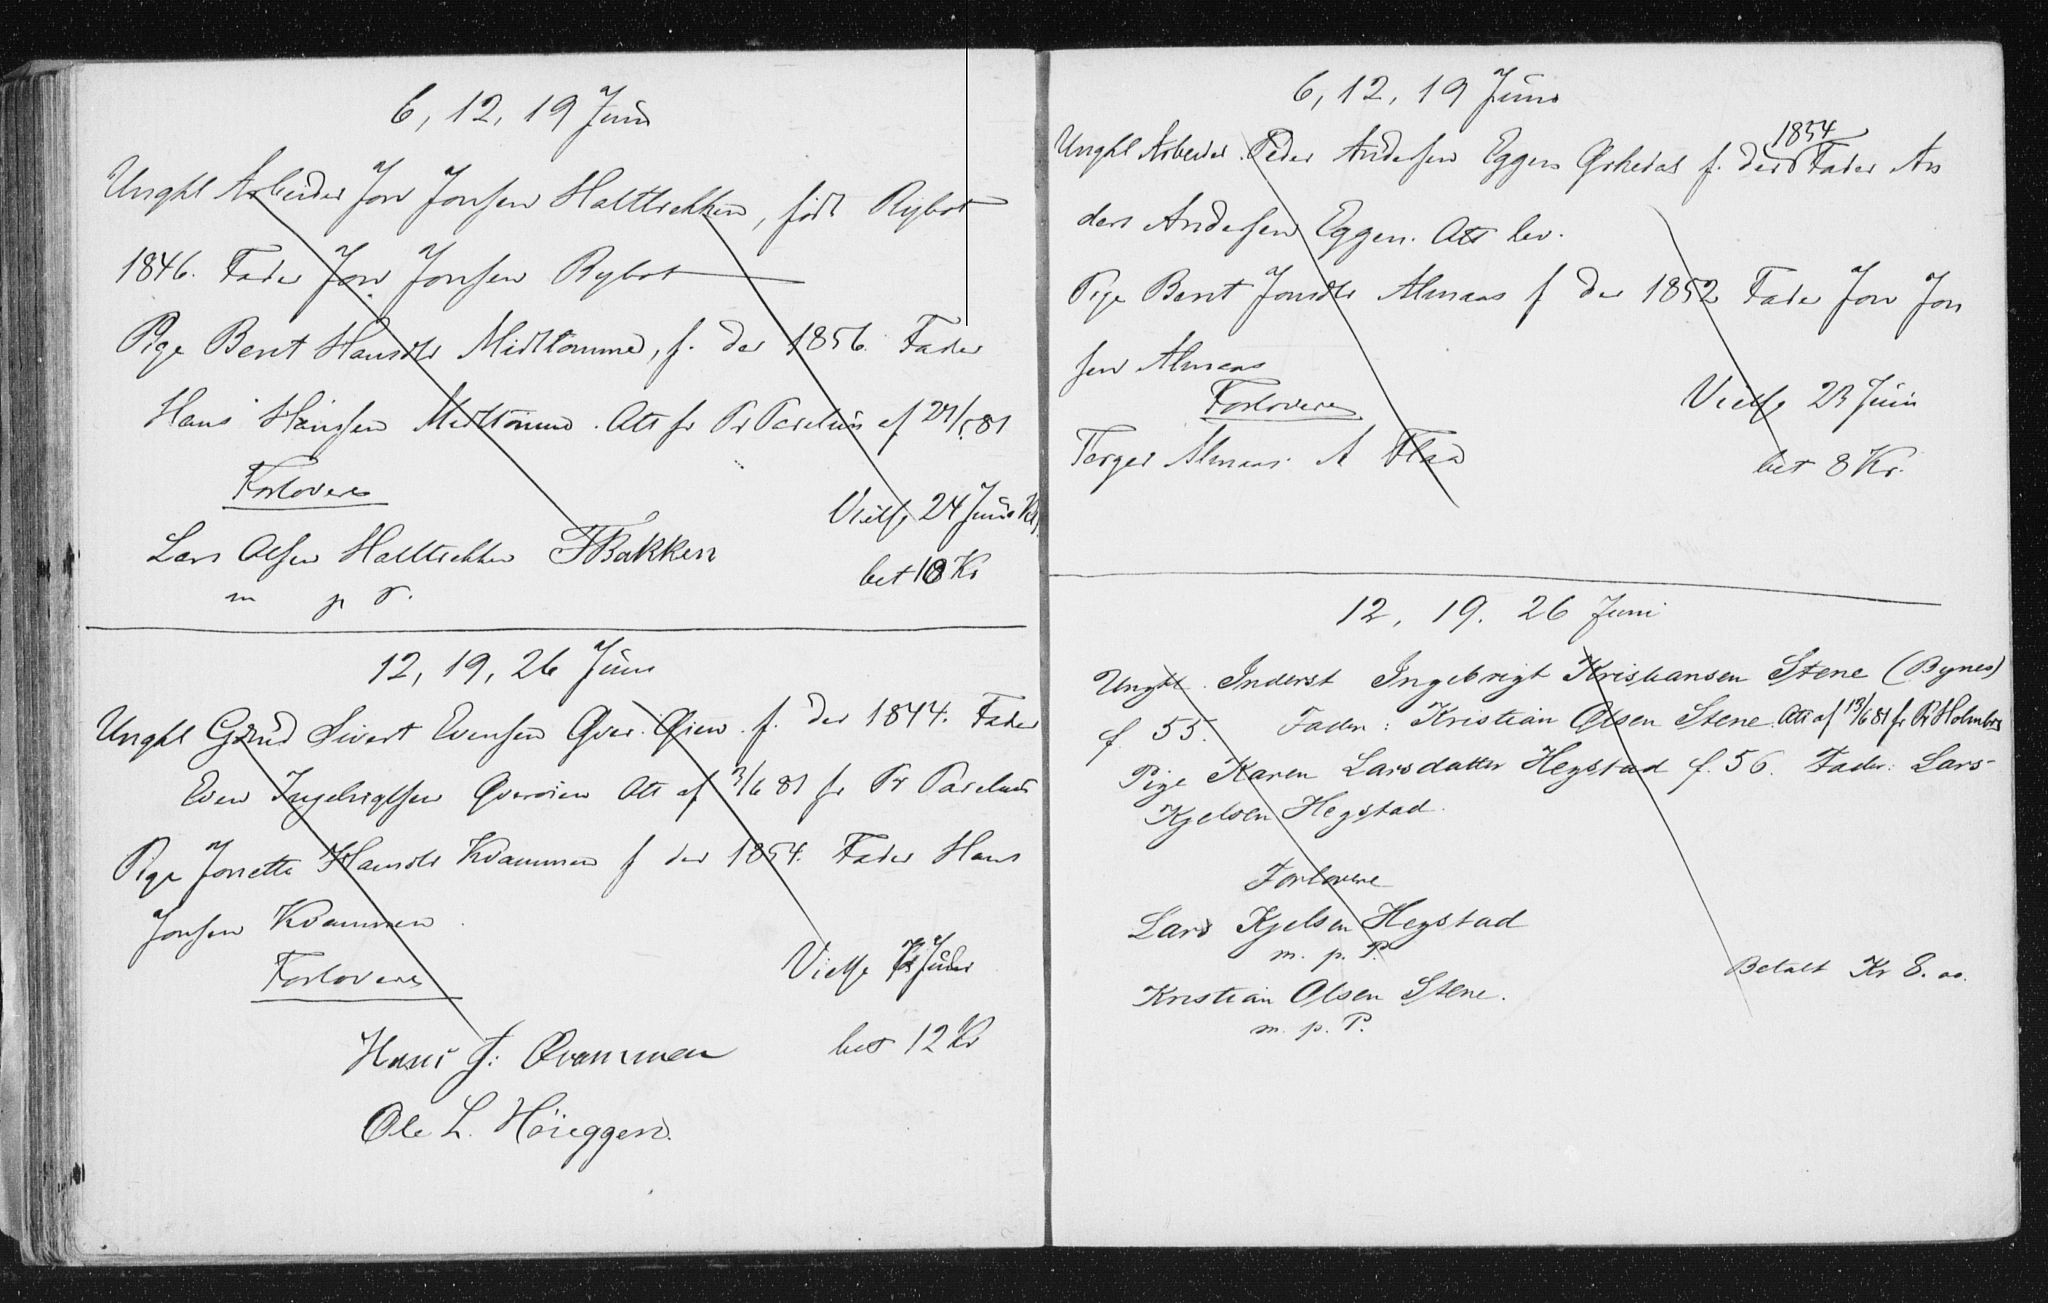 6, 12, 19 Juni
Unghl Arbeider Jon Jonsen Halttrekken, født Rybot
1846. Fader Jon Jonsen Rybot
Pige Berit Hansdtr Midttømme, f. der 1856. Fader
Hans Hansen Midttømme. Att fr Pr Parelius af 21/5 81
Forlovere
Lars Olsen Halttrekken TBakken
m p P.
Vielse 24 Juni Kl.
bet 10 Kr
12, 19, 26 Juni
Unghl Grbrd Sivert Evensen Qver Øien f. der 1844. Fader
Even Ingebrigtsen Qverøien Att af 3/6 81 fr Pr Parelius
Pige Jonetta Hansdtr Kvammen f der 1854. Fader Hans
Jonsen Kvammen
Forlovere
Vielse Juli
bet 12 Kr
Hans J: Qvammen
Ole L. Höieggen.
6, 12, 19 Juni
1854
Unghl Arbeider Peder Andersen Eggen Ørkedal f. der Fader An
ders Andersen Eggen. Att lev.
Pige Berit Jonsdtr Almaas f der 1852 Fader Jon Jon
sen Almaas
Forlovere
Vielse 23 Juni
Torger Almaas. A Flaa
bet 8 Kr.
12, 19. 26 Juni
Unghl. Inderst Ingebrigt Kristiansen Stene (Bynes)
f. 55. Fader: Kristian Olsen Stene. Att af 13/6 81 fr Pr Holmboe
Pige Karen Larsdatter Hegstad f. 56. Fader: Lars-
Kjelsen Hegstad.
Forlovere
Lars Kjelsen Hegstad
m. p. P.
Betalt Kr 8. oo.
Kristian Olsen Stene.
m. p. P.